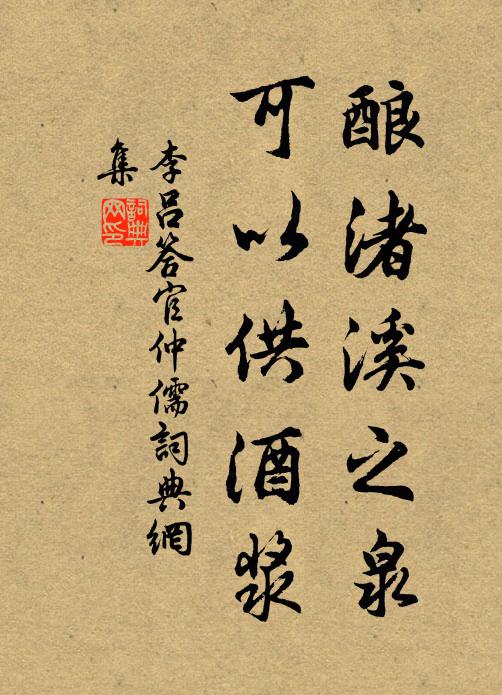 酿渚溪之泉
可以供酒浆
李吕答官仲儒詞典網
集
詞典
网印